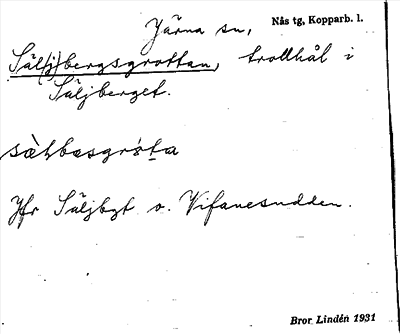 Järna sn, Nås tg, Kopparb. l.
Säl(j)bergsgrottan, trollhål i
Säljberget.
Jfr Säljbgt o. Vifanesudden.
Bror Lindén 1931